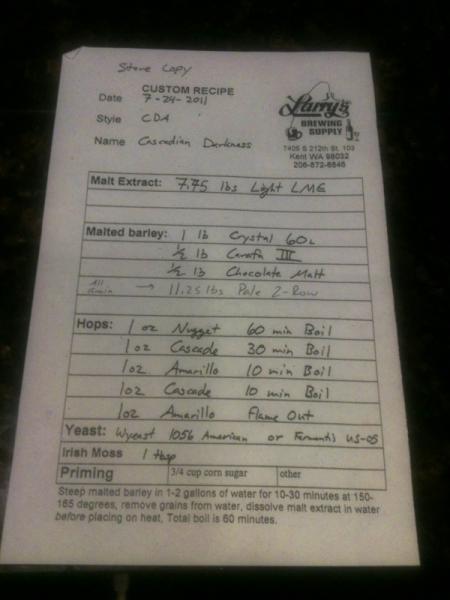 Store Copy
CUSTOM RECIPE
Date 7-24-2011
Style CDA
Name Cascadian Darkness
Larry's
BREWING
SUPPLY
7405 S 212th St. 103
Kent WA 98032
206-872-6846
Malt Extract: 7.75 lbs Light LME
Malted barley: 1 lb Crystal 60L
1/2 lb Carafa III
1/2 lb Chocolate Malt
All Grain → 11.25 lbs Pale 2-Row
Hops: 1 oz Nugget 60 min Boil
1 oz Cascade 30 min Boil
1 oz Amarillo 10 min Boil
1 oz Cascade 10 min Boil
1 oz Amarillo Flame Out
Yeast: Wyeast 1056 American or Fermentis US-05
Irish Moss 1 tbsp
Priming 3/4 cup corn sugar other
Steep malted barley in 1-2 gallons of water for 10-30 minutes at 150-
165 degrees, remove grains from water, dissolve malt extract in water
before placing on heat, Total boil is 60 minutes.